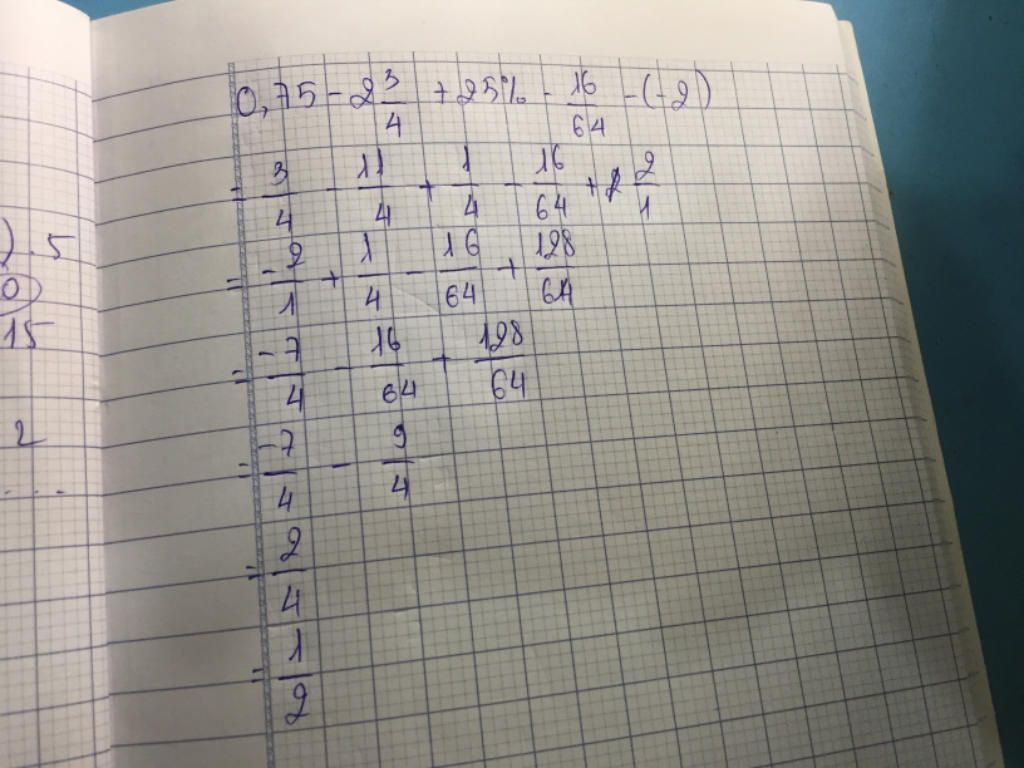 0,75 - 2 3/4 + 25% - 16/64 - (-2)
= 3/4 - 11/4 + 1/4 - 16/64 + 2/1
= -2/1 + 1/4 - 16/64 + 128/64
= -7/4 - 16/64 + 128/64
= -7/4 - 9/4
= 2/4
= 1/2
) . 5
0)
15
2
....